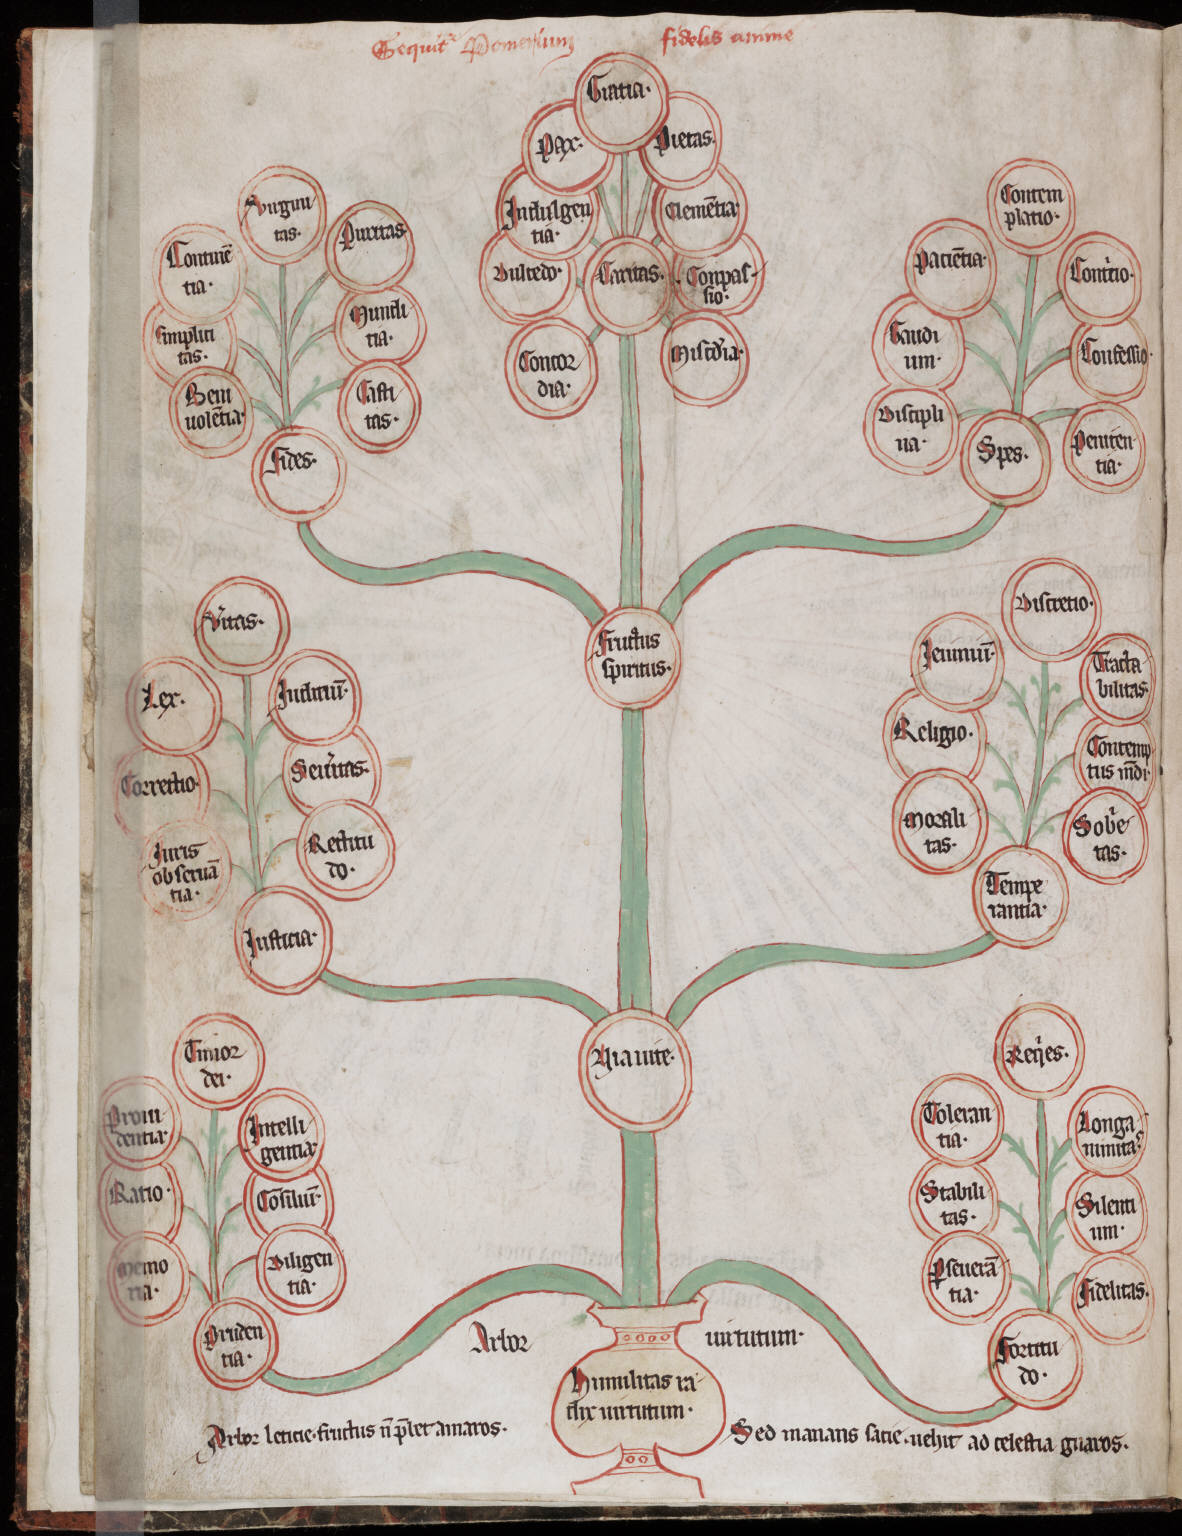 Sequit᷑ Pomerium fidelis anime
Gratia·
Pax·
Pietas·
Indulgen
tia·
Clemētia·
Dulcedo·
Caritas·
Conpas
sio·
Concor
dia·
Mis̄cdia·
Virgini
tas·
Puritas
Continē
tia·
Mundi
tia·
Simplici
tas·
Beni
uolētia·
Casti
tas·
Fides·
Contem
platio·
Paciētia·
Cont̛tio·
Gaudi
um·
Confessio·
Discipli
na·
Peniten
tia·
Spes·
Fructus
spiritus·
V̛itas·
Lex·
Iudiciū·
Correctio·
Seưitas·
Iuris
obseruā
tia·
Rectitu
do·
Iusticia·
Discretio·
Ieiuniū·
Tracta
bilitas·
Religio·
Contemp
tus mūdi·
Morali
tas·
Sob̛e
tas·
Tempe
rantia·
Via uite·
Timor
dei·
Proui
dentia·
Intelli
gentia·
Ratio·
Cōsiliū·
Memo
ria·
Diligen
tia·
Pruden
tia·
Req̄es·
Toleran
tia·
Longa
nimitas
Stabili
tas·
Silenti
um·
Pseuerā
tia·
Fidelitas·
Fortitu
do·
Arbor uirtutum·
Humilitas ra
dix uirtutum·
Arbor leticie·fructus n̄ p̄bet amaros·
Sed manans facie·uehit ad celestia gnaros·